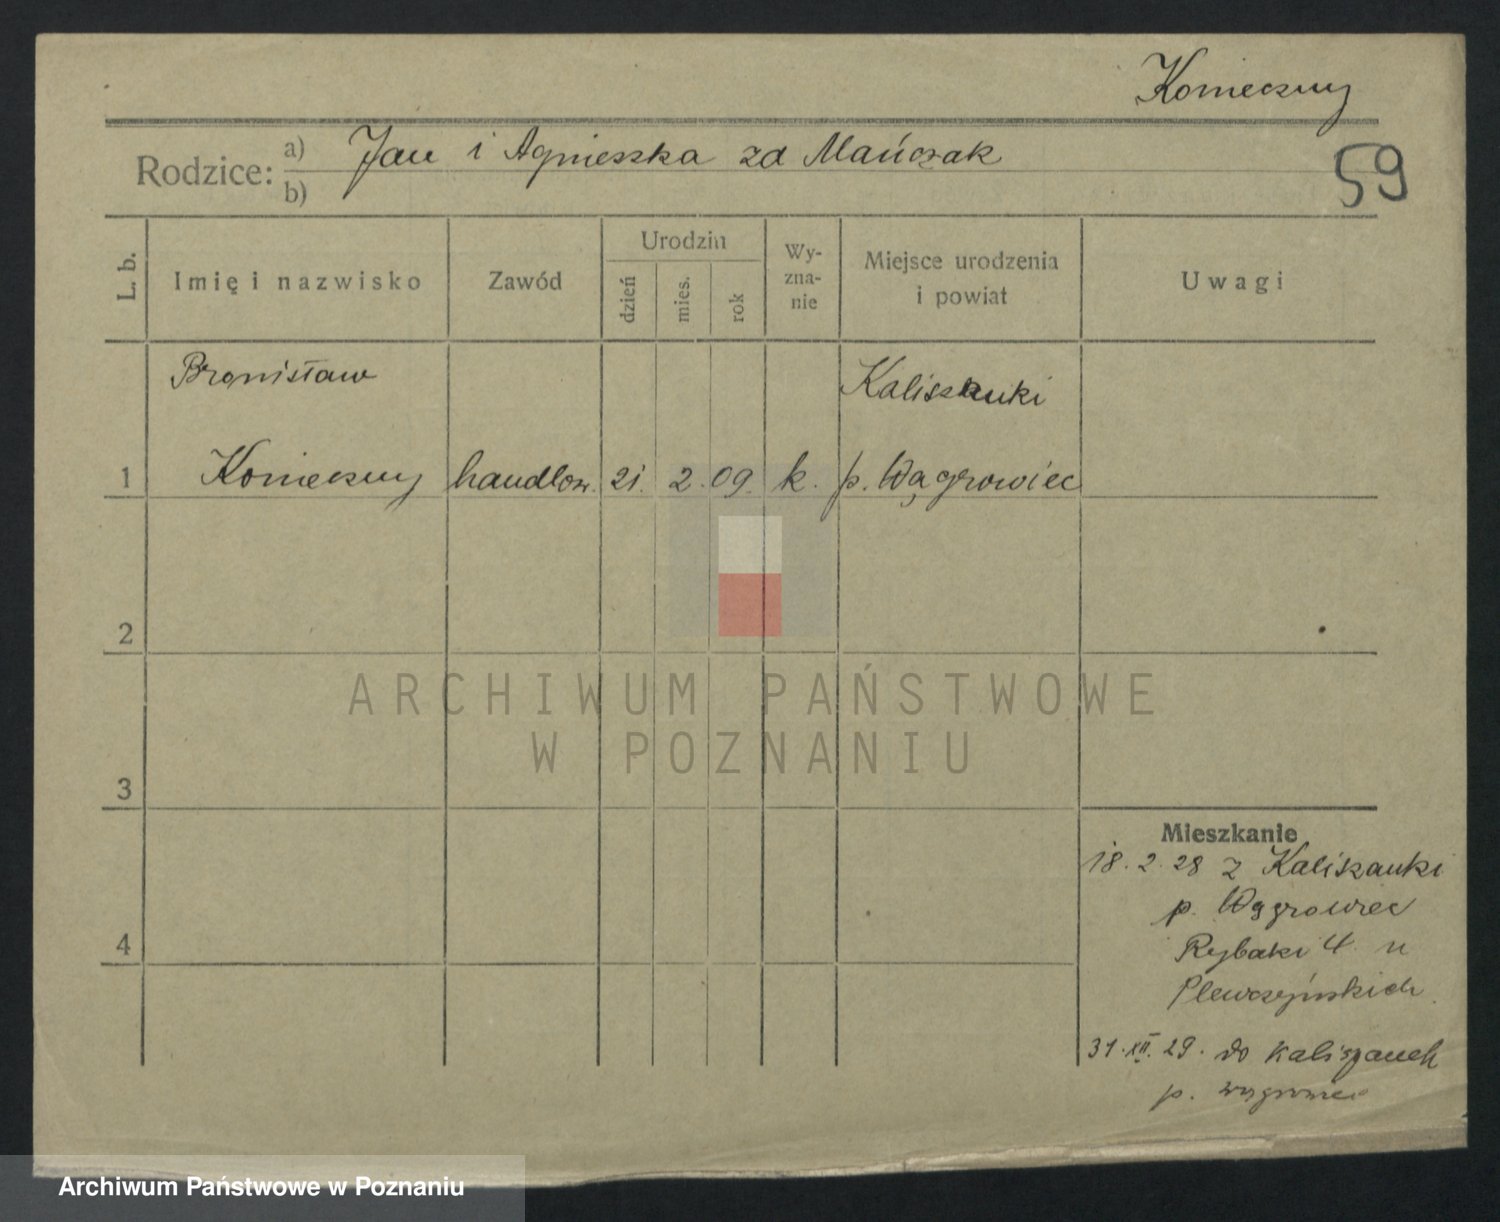 Konieczny
Rodzice: a) Jan i Agnieszka zd Mańczak
b)
59
L. b.
Imię i nazwisko
Zawód
Urodzin
dzień
mies.
rok
Wy-
zna-
nie
Miejsce urodzenia
i powiat
Uwagi
Bronisław
Kaliszanki
1 Konieczny handlow. 21. 2. 09. k. p. Wągrowiec
2
ARCHIWUM PAŃSTWOWE
W POZNANIU
3
Mieszkanie
18. 2. 28 z Kaliszanki
p. Wągrowiec
4
Rybaki 4. u
Plewczyńskich
31. XII. 29. do Kaliszanek
p. wągrowiec
Archiwum Państwowe w Poznaniu